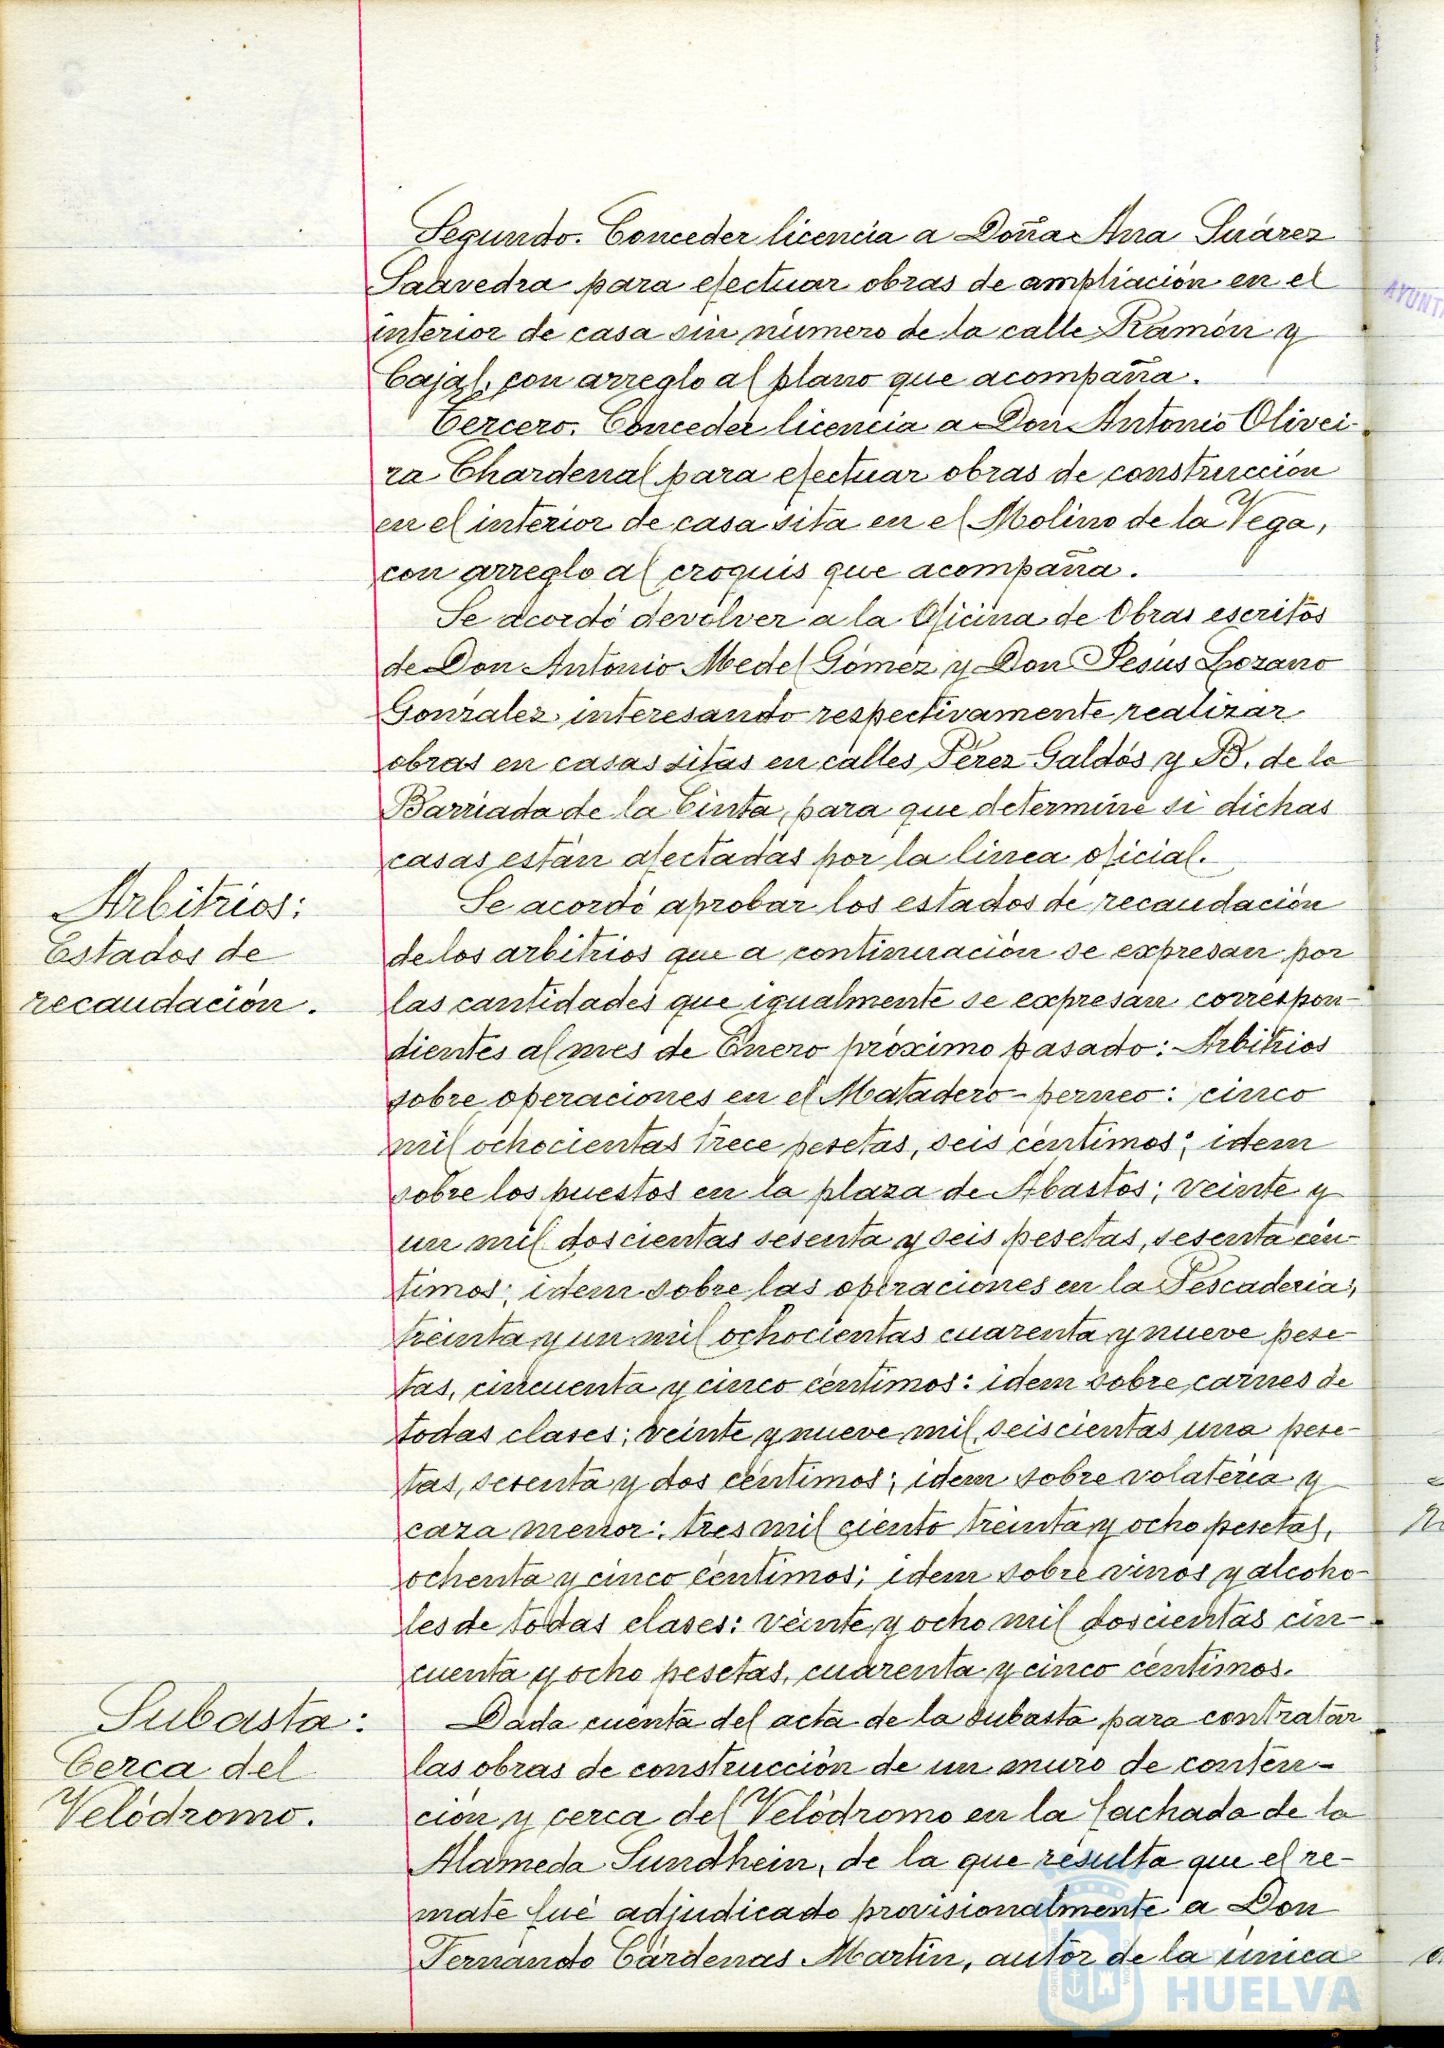 Segundo. Conceder licencia a Doña Ana Suárez
Saavedra para efectuar obras de ampliación en el
interior de casa sin número de la calle Ramón y
Cajal, con arreglo al plano que acompaña.
Tercero. Conceder licencia a Don Antonio Olivei-
ra Chardenal para efectuar obras de construcción
en el interior de casa sita en el Molino de la Vega,
con arreglo al croquis que acompaña.
Se acordó devolver a la Oficina de Obras escritos
de Don Antonio Medel Gómez y Don Jesús Lozano
González interesando respectivamente realizar
obras en casas sitas en calles Pérez Galdós y B. de la
Barriada de la Cinta, para que determine si dichas
casas están afectadas por la línea oficial.
Arbitrios:
Estados de
recaudación.
Se acordó aprobar los estados de recaudación
de los arbitrios que a continuación se expresan por
las cantidades que igualmente se expresan correspon-
dientes al mes de Enero próximo pasado: Arbitrios
sobre operaciones en el Matadero-perneo: cinco
mil ochocientas trece pesetas, seis céntimos; idem
sobre los puestos en la plaza de Abastos; veinte y
un mil doscientas sesenta y seis pesetas, sesenta cén-
timos; idem sobre las operaciones en la Pescadería;
treinta y un mil ochocientas cuarenta y nueve pese-
tas, cincuenta y cinco céntimos: idem sobre carnes de
todas clases; veinte y nueve mil seiscientas una pese-
tas, sesenta y dos céntimos; idem sobre volatería y
caza menor: tres mil ciento treinta y ocho pesetas,
ochenta y cinco céntimos; idem sobre vinos y alcoho-
les de todas clases: veinte y ocho mil doscientas cin-
cuenta y ocho pesetas, cuarenta y cinco céntimos.
Subasta:
Cerca del
Velódromo.
Dada cuenta del acta de la subasta para contratar
las obras de construcción de un muro de conten-
ción y cerca del Velódromo en la fachada de la
Alameda Sundhein, de la que resulta que el re-
mate fué adjudicado provisionalmente a Don
Fernando Cárdenas Martín, autor de la única
HUELVA